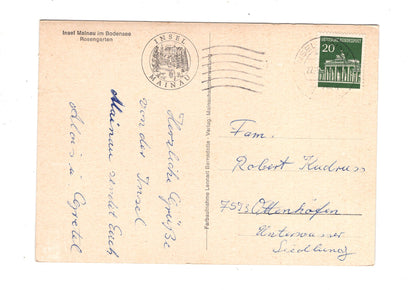 Insel Mainau im Bodensee
Rosengarten
INSEL
MAINAU
INSEL
20
DEUTSCHE BUNDESPOST
Herzliche Grüße
von der Insel
Mainau sendet Euch
Alois u. Gretel
Farbaufnahme Lennart Bernadotte - Verlag Mainau
Fam.
Robert Kudruss
7593 Ottenhöfen
Unterwasser
Siedlung